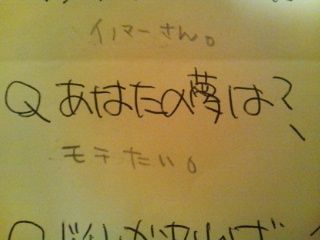 イノマーさん。
Q あなたの夢は?
モテたい。
Q